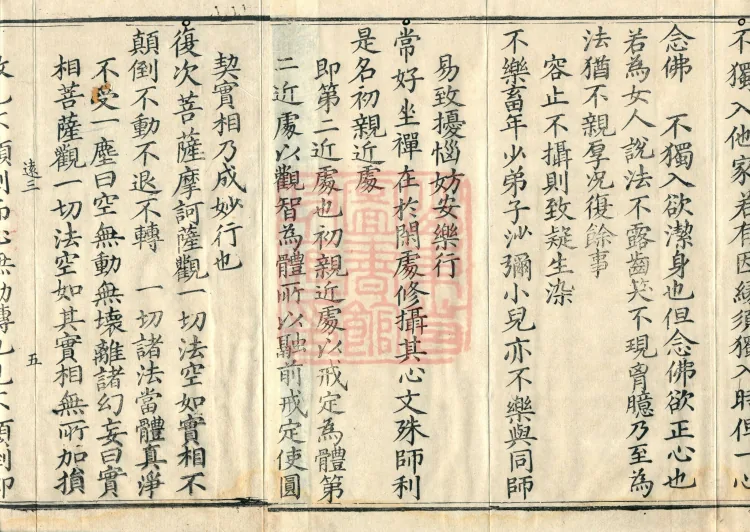 不獨入他家若有因緣須獨入時但一心
念佛　不獨入欲潔身也但念佛欲正心也
若為女人說法不露齒笑不現胷臆乃至為
法猶不親厚况復餘事
容止不攝則致疑生染
不樂畜年少弟子沙彌小兒亦不樂與同師
易致擾惱妨安樂行
常好坐禪在於閑處修攝其心文殊師利
是名初親近處
即第二近處也初親近處以戒定為體第
二近處以觀智為體所以融前戒定使圓
契實相乃成妙行也
復次菩薩摩訶薩觀一切法空如實相不
顛倒不動不退不轉　一切諸法當體真淨
不受一塵曰空無動無壞離諸幻妄曰實
相菩薩觀一切法空如其實相無所加損
遠三　五
故凡不顛到而心無動轉也凡不顛到即